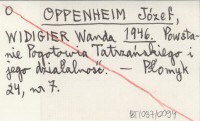 O
OPPENHEIM Józef,
WIDIGIER Wanda 1946. Powsta-
nie Pogotowia Tatrzańskiego i
jego działalność. — Płomyk
24, nr 7.
BT/097/0094